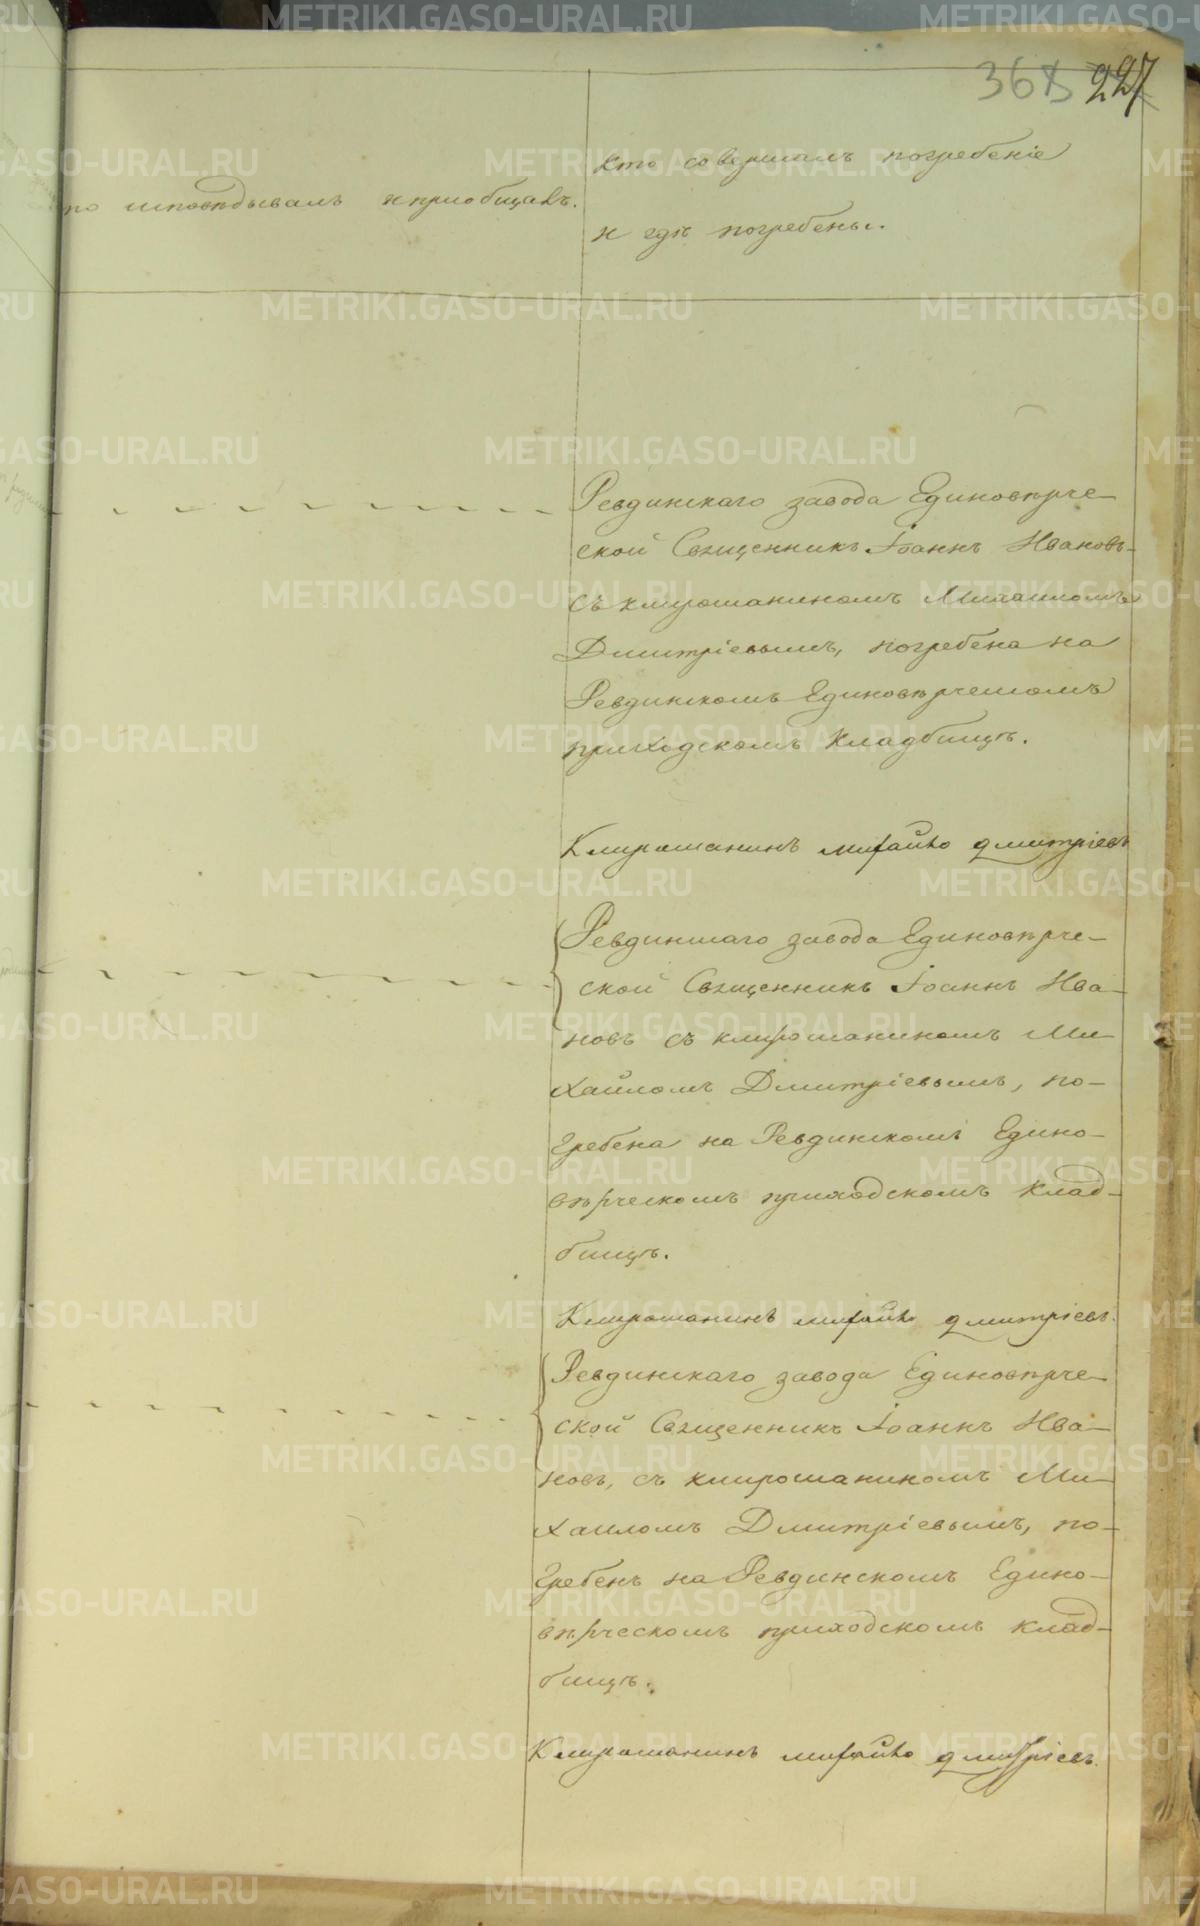 368 227
кто совершалъ погребеніе
исповѣдывалъ и приобщалъ.
и гдѣ погребены.
Ревдинскаго завода Единовѣрче-
ской Священникъ Іоаннъ Ивановъ
съ клирошаниномъ Михаиломъ
Дмитріевымъ, погребена на
Ревдинскомъ Единовѣрческомъ
приходскомъ кладбищѣ.
Клирошанинъ михайло дмитріевъ
Ревдинскаго завода Единовѣрче-
ской Священникъ Іоаннъ Ива-
новъ съ клирошаниномъ Ми-
хайломъ Дмитріевымъ, по-
гребена на Ревдинскомъ Едино-
вѣрческомъ приходскомъ клад-
бищѣ.
Клирошанинъ михайло дмитріевъ.
Ревдинскаго завода Единовѣрче-
ской Священникъ Іоаннъ Ива-
новъ, съ клирошаниномъ Ми-
хаиломъ Дмитріевымъ, по-
гребенъ на Ревдинскомъ Едино-
вѣрческомъ приходскомъ клад-
бищѣ.
Клирошанинъ михайло дмитріевъ.
METRIKI.GASO-URAL.RU